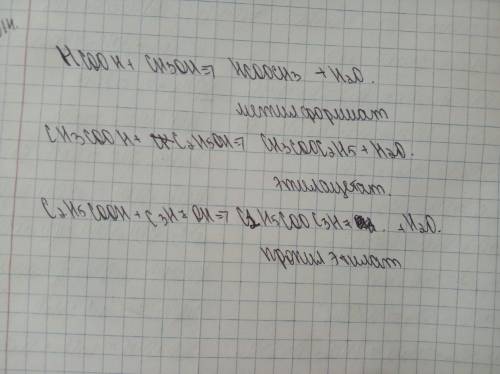 HCOOH + CH3OH => HCOOCH3 + H2O.
метилформиат
CH3COOH + C2H5OH => CH3COOC2H5 + H2O.
этилацетат.
C2H5COOH + C3H7OH => C2H5COOC3H7 + H2O.
пропил этилат